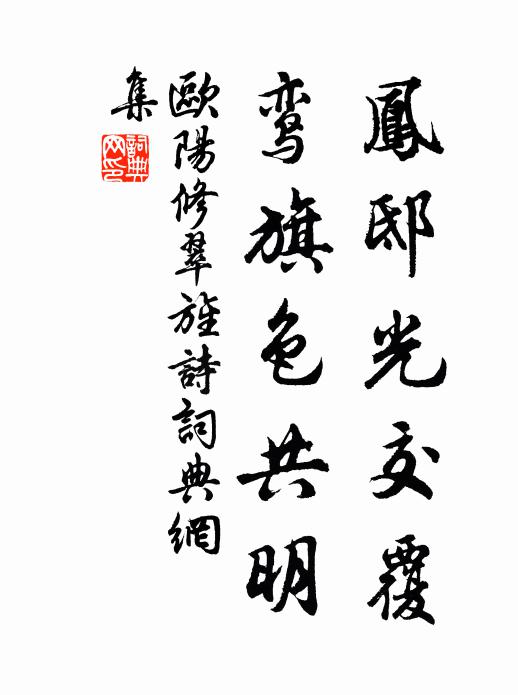 鳳邸光交覆
鸾旗色共明
歐陽修翠旌詩詞典網
集
詞典
网印